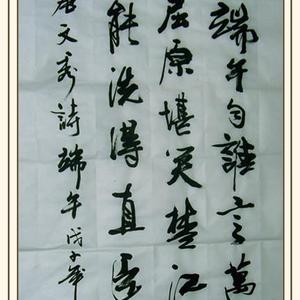 端午自誰言萬
屈原堪笑楚江
能洗得直臣
唐文秀詩端午戊子年